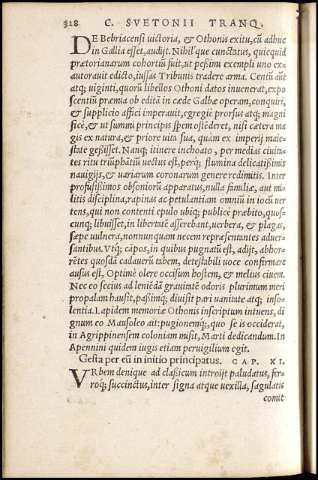 328 C. SVETONII TRANQ.
DE Bebriacensi uictoria, & Othonis exitu, cũ adhuc
in Gallia esset, audijt. Nihil'que cunctatus, quicquid
prætorianarum cohortiũ fuit, ut pessimi exempli uno ex-
autorauit edicto, iussas Tribunis tradere arma. Centũ aũt
atq; uiginti, quorũ libellos Othoni datos inuenerat, expo
scentiũ præmia ob edita in cæde Galbæ operam, conquiri,
& supplicio affici imperauit, egregie prorsus atq; magni
ficè, & ut summi principis spem ostẽderet, nisi cætera ma
gis ex natura, & priore uita sua, quàm ex imperij maie-
state gessisset. Nanq; itinere inchoato, per medias ciuita-
tes ritu triũphãtũ uectus est, perq; flumina delicatissimis
nauigijs, & uariarum coronarum genere redimitis. Inter
profusissimos obsoniorũ apparatus, nulla familiæ, aut mi
litis disciplina, rapinas ac petulantiam omniũ in iocũ uer
tens, qui non contenti epulo ubiq; publicè præbito, quos-
cunq; libuisset, in libertatẽ asserebant, uerbera, & plagas,
sæpe uulnera, nonnunquam necem repræsentantes aduer-
santibus. Vtq; cãpos, in quibus pugnatũ est, adijt, abhor-
rẽtes quosdã cadauerũ tabem, detestabili uoce confirmare
ausus est, Optimè olere occisum hostem, & melius ciuem.
Nec eo secius ad leniẽdã grauitatẽ odoris plurimum meri
propalam hausit, passimq; diuisit pari uanitate atq; inso-
lentia. Lapidem memoriæ Othonis inscriptum intuens, di
gnum eo Mausoleo ait: pugionemq;, quo se is occiderat,
in Agrippinensem coloniam misit, Marti dedicandum. In
Apennini quidem iugis etiam peruigilium egit.
Gesta per eũ in initio principatus. CAP. XI.
VRbem denique ad classicum introijt paludatus, fer-
roq; succinctus, inter signa atque uexilla, sagulatis
comit